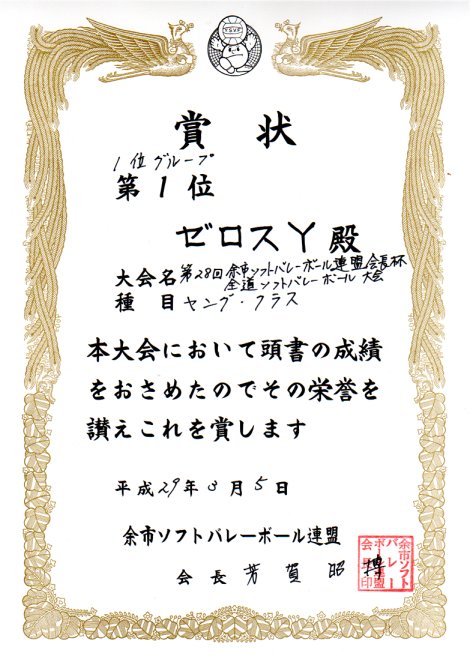 賞状
1位グループ
第1位
ゼロスY殿
大会名 第28回余市ソフトバレーボール連盟会長杯
全道ソフトバレーボール大会
種目 ヤング・クラス
本大会において頭書の成績
をおさめたのでその栄誉を
讃えこれを賞します
平成29年3月5日
余市ソフトバレーボール連盟
会長 芳賀昭博
余市ソフト
バレー
ボール連盟
会長印